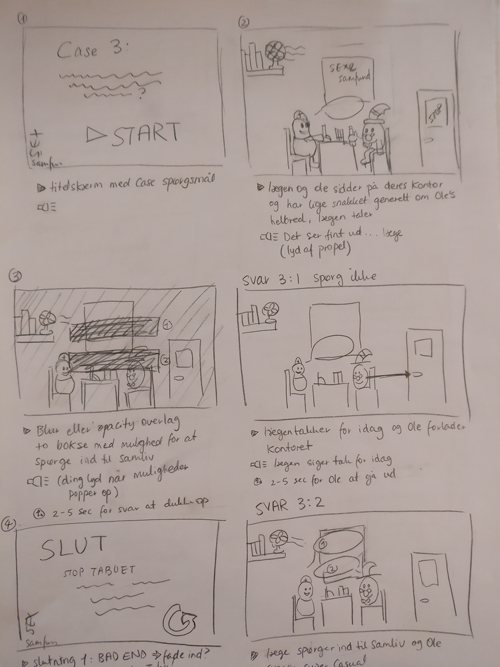 ①
Case 3:
?
▷ START
SEX &
samfun
▷ titelskærm med Case spørgsmål
②
SEX &
samfund
STOP
▷ lægen og ole sidder på deres kontor
og har lige snakket generelt om Ole's
helbred, lægen taler
Det ser fint ud... læge
(lyd af propel)
③
①
②
▷ Blur eller opacity overlag
to bokse med mulighed for at
spørge ind til samliv
(ding lyd når muligheder
popper op)
2-5 sec for svar at dukke op
SVAR 3:1 spørg ikke
▷ lægen takker for idag og Ole forlader
kontoret
lægen siger tak for idag
2-5 sec for Ole at gå ud
④
SLUT
STOP TABUET
SEX
samfun
▷ slutning 1: BAD END → fade ind?
SVAR 3:2
①
②
▷ læge spørger ind til samliv og Ole
super casual